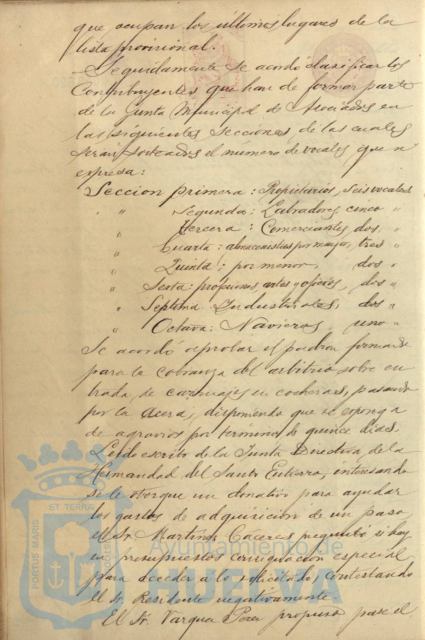 que ocupan los últimos lugares de la
lista provisional.
Seguidamente se acordó clasificar los
Contribuyentes que han de formar parte
de la Junta Municipal de Asociados en
las siguientes Secciones de las cuales
serán sorteados el número de vocales que se
expresa:
Seccion primera: Propietarios, seis vocales
" Segunda: Labradores cinco "
" Tercera: Comerciantes dos, "
" Cuarta: almacenistas por mayor, tres "
" Quinta: por menor, dos "
" Sesta: profesiones, artes y oficios, dos "
" Septima Industriales, dos "
" Octava: Navieros, uno "
Se acordó aprobar el padron formado
para la cobranza del arbitrio sobre en
trada de carruajes en cocheras, pasando
por la acera, disponiendo que se esponga
de agravios por término de quince dias.
Leido escrito de la Junta Directiva de la
Hermandad del Santo Entierro, interesando
se le otorgue un donativo para ayudar
los gastos de adquisición de un paso,
el Sr. Martinez Caceres preguntó si hay
en presupuestos consignación especial
para acceder a lo solicitado, contestando
el Sr. Presidente negativamente.
El Sr. Vazquez Perez propuso pase el
PORTUS MARIS
ET TERRÆ
CUSTODIA
Ayuntamiento de
HUELVA